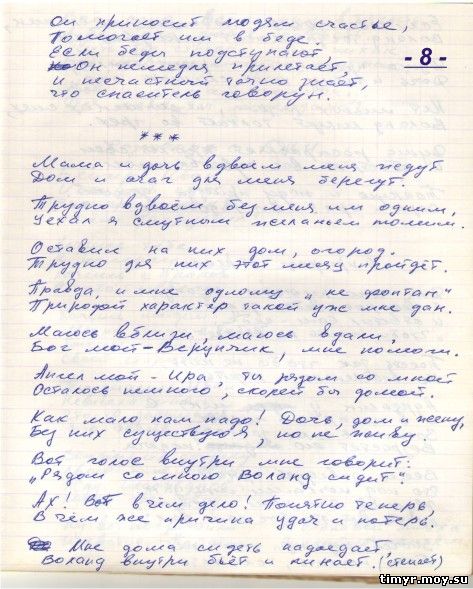 Он приносит людям счастье,
Помогает им в беде.
Если беды подступают,
Он немедля прилетает,
И несчастный точно знает,
Что спаситель говорун.
- 8 -
***
Мама и дочь вдвоем меня ждут
Дом и очаг для меня берегут.
Трудно вдвоем без меня им одним,
Уехал я смутным желаньем томим.
Оставил на них дом, огород.
Трудно для них этот месяц пройдёт.
Правда, и мне одному „не фонтан"
Природой характер такой уж мне дан.
Маюсь вблизи, маюсь вдали,
Бог мой - Верунчик, мне помоги.
Ангел мой - Ира, ты рядом со мной
Осталось немного, скорей бы домой.
Как мало нам надо! Дочь, дом и жену,
Без них существую я, но не живу.
Вот голос внутри мне говорит:
„Рядом со мною Воланд сидит"
Ах! Вот в чём дело! Понятно теперь,
В чём же причина удач и потерь.
Мне дома сидеть надоедает,
Воланд внутри бьёт и пинает. (стенает)
timyr.moy.su